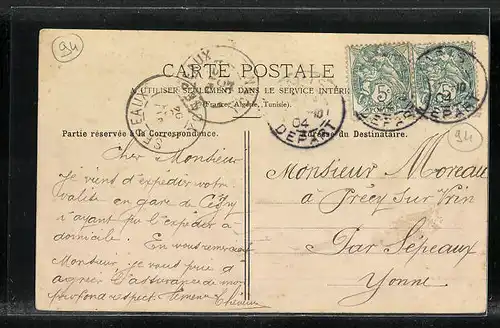 94
CARTE POSTALE
À UTILISER SEULEMENT DANS LE SERVICE INTÉR
(France, Algérie, Tunisie).
Partie réservée à la Correspondance.
Adresse du Destinataire.
Cher Monsieur
Je viens d'expédier votre
valise en gare de Cézy
n'ayant pu l'expédier à
domicile. En vous remerciant
Monsieur je vous prie d
agréer l'assurance de mon
profond respect.
Monsieur Moreau
à Précy Sur Vrin
Par Sépeaux
Yonne
94
SEPEAUX
04
DEPART
5
5
DEPART